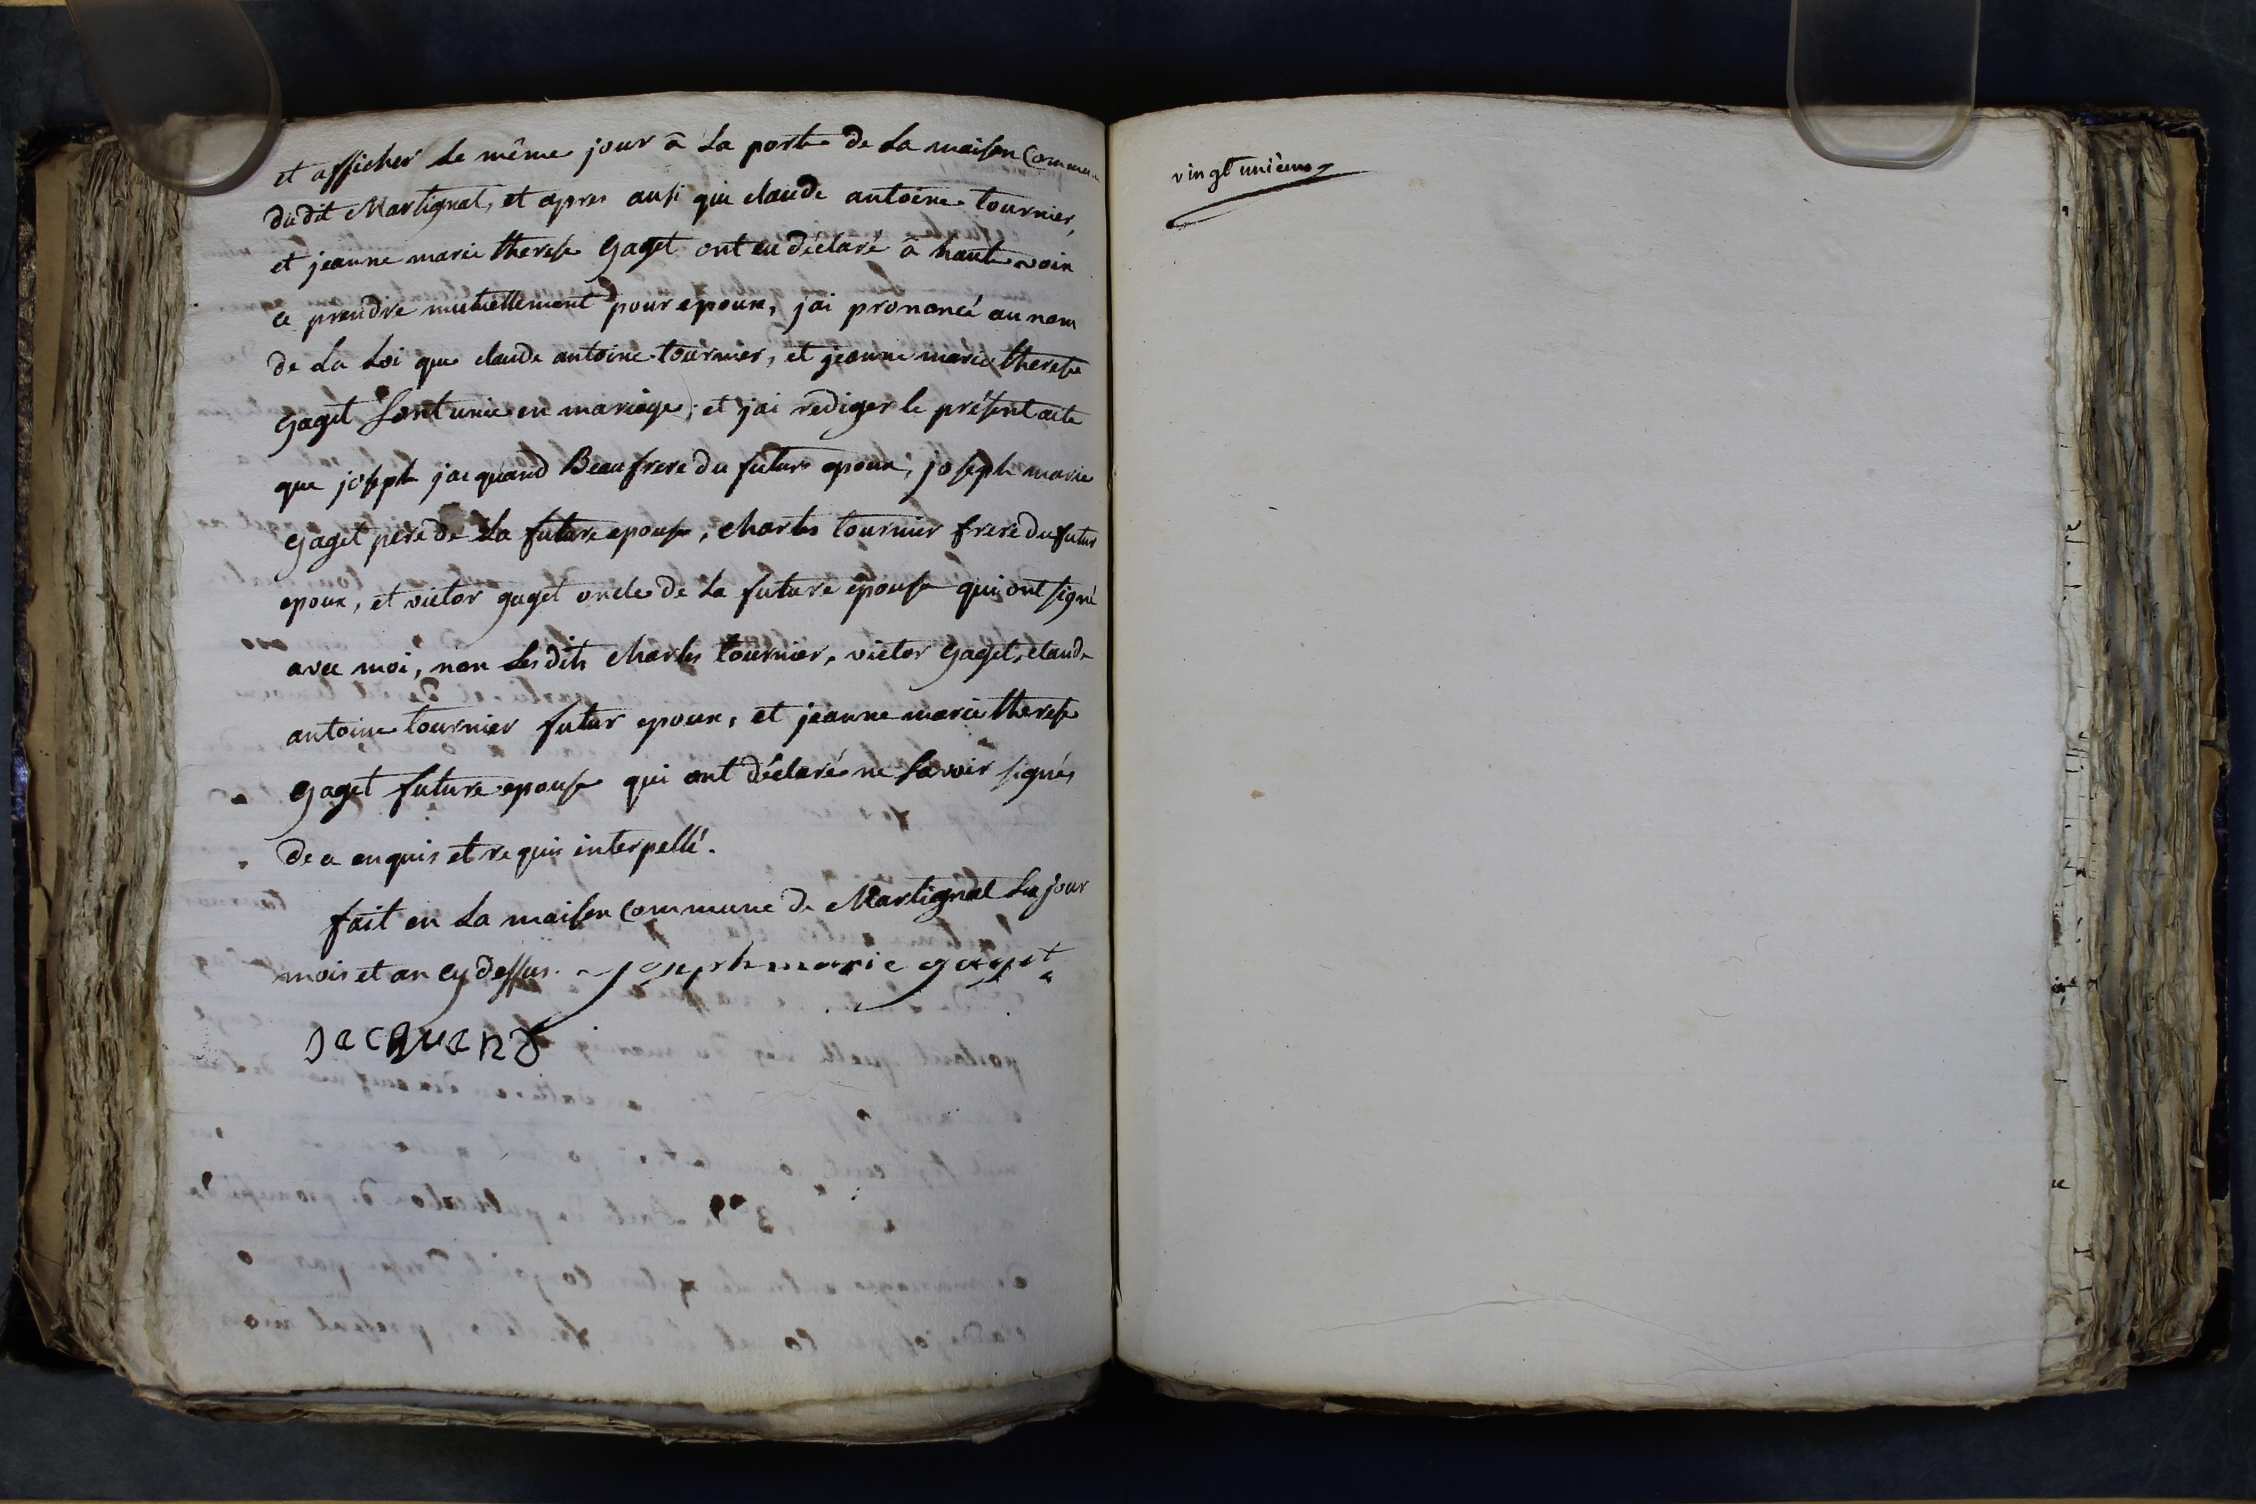 et afficher le même jour â la porte de la maison Commune
dudit Martignat, et apres ausi que claude antoine tournier,
et jeanne marie therese gaget ont eu déclaré â haute voix
ce prendre mutuellement pour epoux, j'ai prononcé au nom
de la Loi que claude antoine tournier, et jeanne marie therese
gaget sont unie en mariage; et j'ai rediger le présent acte
que joseph jacquand Beaufrere du futur epoux, joseph marie
gaget pere de la future epouse, charles tournier frere du futur
epoux, et victor gaget oncle de la future epouse qui ont signé
avec moi, non lesdits charles tournier, victor gaget, claude
antoine tournier futur epoux, et jeanne marie therese
gaget future epouse qui ont déclaré ne savoir signés
de ce enquis et requis interpellé.
fait en la maison commune de Martignat les jour
mois et an cy dessus. joseph marie gaget
jacquand
vingt unième